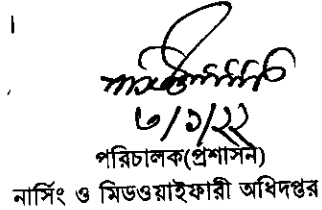 ৬/১/২২
পরিচালক(প্রশাসন)
নার্সিং ও মিডওয়াইফারী অধিদপ্তর